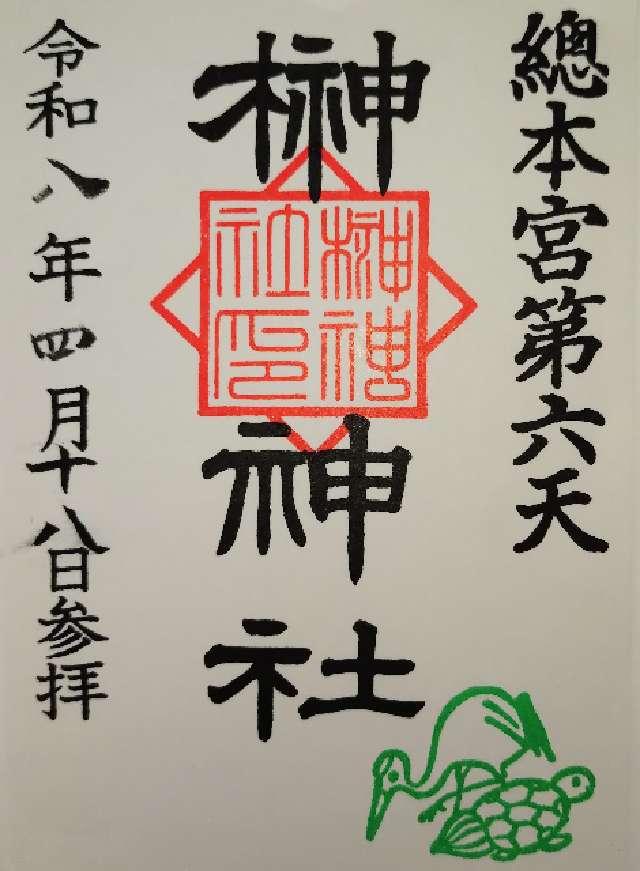 總本宮第六天
榊神社
榊神
社印
令和八年四月十八日参拝